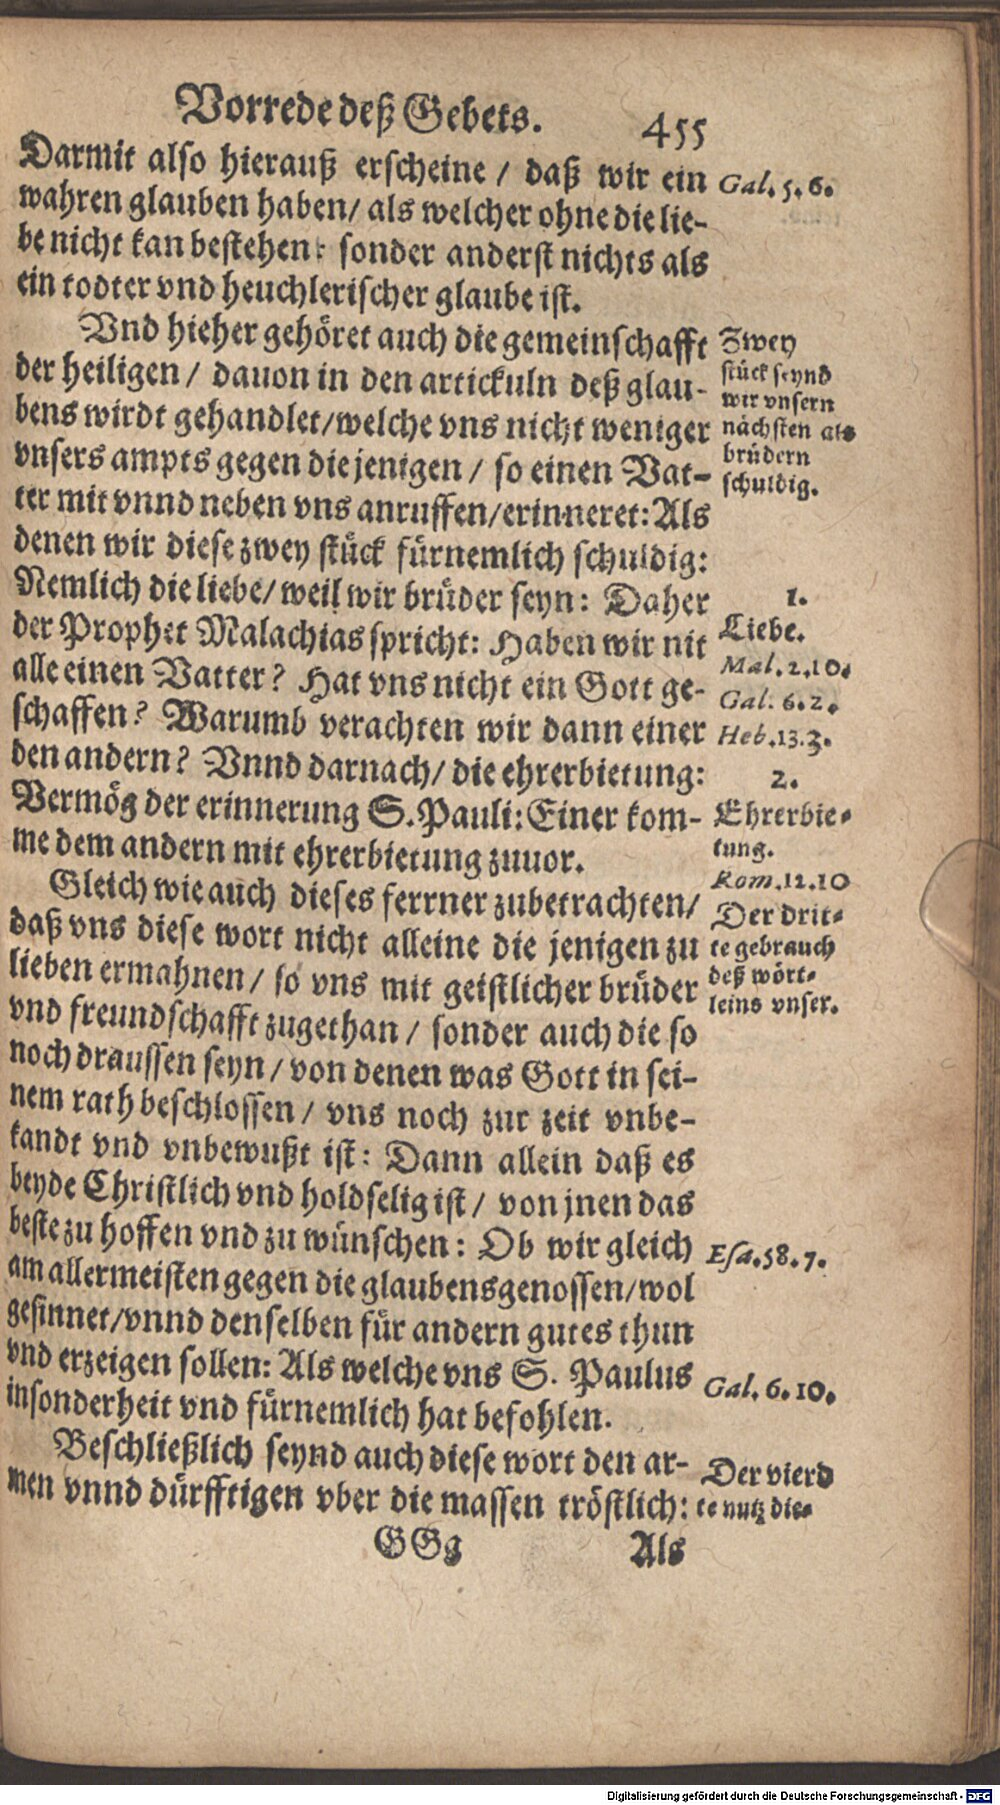 Vorrede deß Gebets.
455
Darmit also hierauß erscheine / daß wir ein
wahren glauben haben / als welcher ohne die lie-
be nicht kan bestehen: sonder anderst nichts als
ein todter vnd heuchlerischer glaube ist.
Vnd hieher gehöret auch die gemeinschafft
der heiligen / dauon in den artickuln deß glau-
bens wirdt gehandlet / welche vns nicht weniger
vnsers ampts gegen die jenigen / so einen Vat-
ter mit vnnd neben vns anruffen / erinneret: Als
denen wir diese zwey stück fürnemlich schuldig:
Nemlich die liebe / weil wir brüder seyn: Daher
der Prophet Malachias spricht: Haben wir nit
alle einen Vatter? Hat vns nicht ein Gott ge-
schaffen? Warumb verachten wir dann einer
den andern? Vnnd darnach / die ehrerbietung:
Vermög der erinnerung S. Pauli: Einer kom-
me dem andern mit ehrerbietung zuuor.
Gleich wie auch dieses ferrner zubetrachten /
daß vns diese wort nicht alleine die jenigen zu
lieben ermahnen / so vns mit geistlicher brüder
vnd freundschafft zugethan / sonder auch die so
noch draussen seyn / von denen was Gott in sei-
nem rath beschlossen / vns noch zur zeit vnbe-
kandt vnd vnbewußt ist: Dann allein daß es
beyde Christlich vnd holdselig ist / von jnen das
beste zu hoffen vnd zu wünschen: Ob wir gleich
am allermeisten gegen die glaubensgenossen / wol
gesinnet / vnnd denselben für andern gutes thun
vnd erzeigen sollen: Als welche vns S. Paulus
insonderheit vnd fürnemlich hat befohlen.
Beschließlich seynd auch diese wort den ar-
men vnnd dürfftigen vber die massen tröstlich:
GGg
Als
Gal. 5. 6.
Zwey
stück seynd
wir vnsern
nächsten als
brüdern
schuldig.
1.
Liebe.
Mal. 2. 10.
Gal. 6. 2.
Heb. 13. 3.
2.
Ehrerbie-
tung.
Rom. 12. 10
Der drit-
te gebrauch
deß wört-
leins vnser.
Esa. 58. 7.
Gal. 6. 10.
Der vierd
te nutz die-
Digitalisierung gefördert durch die Deutsche Forschungsgemeinschaft - DFG